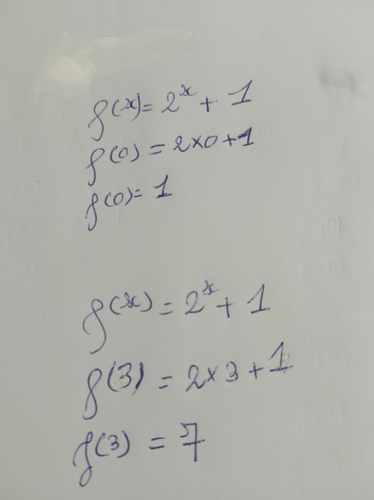 f(x) = 2ˣ + 1
f(0) = 2×0+1
f(0) = 1
f(x) = 2ˣ + 1
f(3) = 2×3+1
f(3) = 7